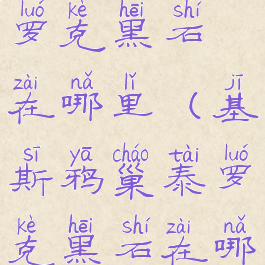 luó kè hēi shí
罗克黑石
zài nǎ lǐ jī
在哪里（基
sī yā cháo tài luó
斯鸦巢泰罗
kè hēi shí zài nǎ
克黑石在哪